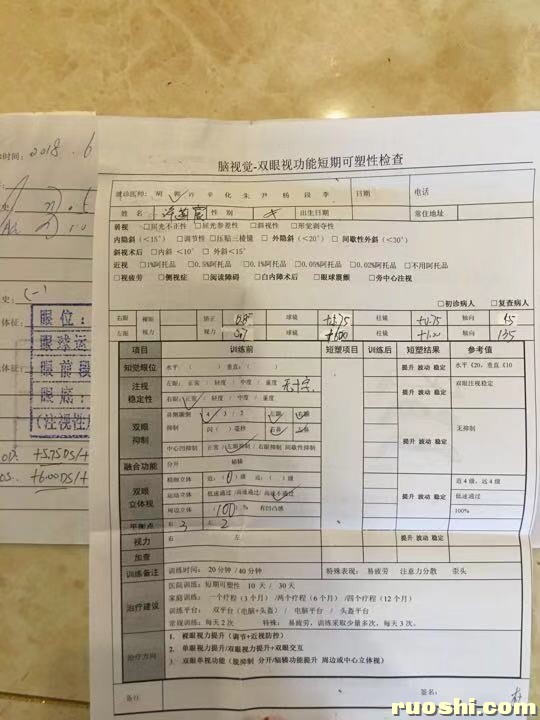 时间：2018.6
史：(-)
眼位：
眼球运
眼前段
眼底：
(注视性
OD +5.75DS/+
OS +6.00DS/+
脑视觉-双眼视功能短期可塑性检查
就诊医师： 胡 郭 许 辛 化 朱 尹 杨 段 李 日期 电话
姓名 性别 女 出生日期 常住地址
弱视 □屈光不正性 □屈光参差性 □斜视性 □形觉剥夺性
内隐斜（<15°） □调节性 □压贴三棱镜 □外隐斜（<20°） □间歇性外斜（<30°）
斜视术后 □内斜<10° □外斜<15°
近视 □1%阿托品 □0.5%阿托品 □0.1%阿托品 □0.05%阿托品 □0.02%阿托品 □不用阿托品
□视疲劳 □侧视症 □阅读障碍 □白内障术后 □眼球震颤 □旁中心注视
□初诊病人 □复查病人
右眼 裸眼 矫正 0.8 球镜 +5.75 柱镜 +0.75 轴向
左眼 视力 视力 球镜 +6.00 柱镜 +1.00 轴向 135
项目 训练前 短塑项目 训练后 短塑结果 参考值
知觉眼位 水平（ ）垂直：（ ） 提升 波动 稳定 水平《20，垂直《10
注视稳定性 左眼：正常 / 轻度 / 中度 / 重度 无十字 提升 波动 稳定 双眼注视稳定
右眼：正常 / 轻度 / 中度 / 重度
双眼抑制 4 3 2 左眼 右眼 提升 波动 稳定 无抑制
中心凹抑制 正常 / 左眼抑制 / 右眼抑制 间歇性抑制
融合功能 分开 辐辏
双眼立体视 精细立体 近（0）级 远（ ）级 提升 波动 稳定 近4级，远4级
运动立体 低速通过 / 高速通过 / 高速不通过 低速通过
周边立体 100% 有凹凸感 100%
平衡点 右 3 左 2
视力 右 左 提升 波动 稳定
加查
训练备注 训练时间：20分钟 / 40分钟 特殊表现：易疲劳 注意力分散 歪头
治疗建议 医院训练：短期可塑性 10天 / 30天
家庭训练： 一个疗程（3个月） /两个疗程（6个月） /四个疗程（12个月）
训练平台： 双平台（电脑+头盔） / 电脑平台 / 头盔平台
常规训练：每天2次 特殊：易疲劳，训练采取少量多次，每天3次。
治疗方向 1. 裸眼视力提升（调节+近视防控）
2. 单眼视力提升/双眼视力提升+双眼交互
3. 双眼单视功能（脱抑制 分开/辐辏功能提升 周边或中心立体视）
备注 签名：
ruoshi.com